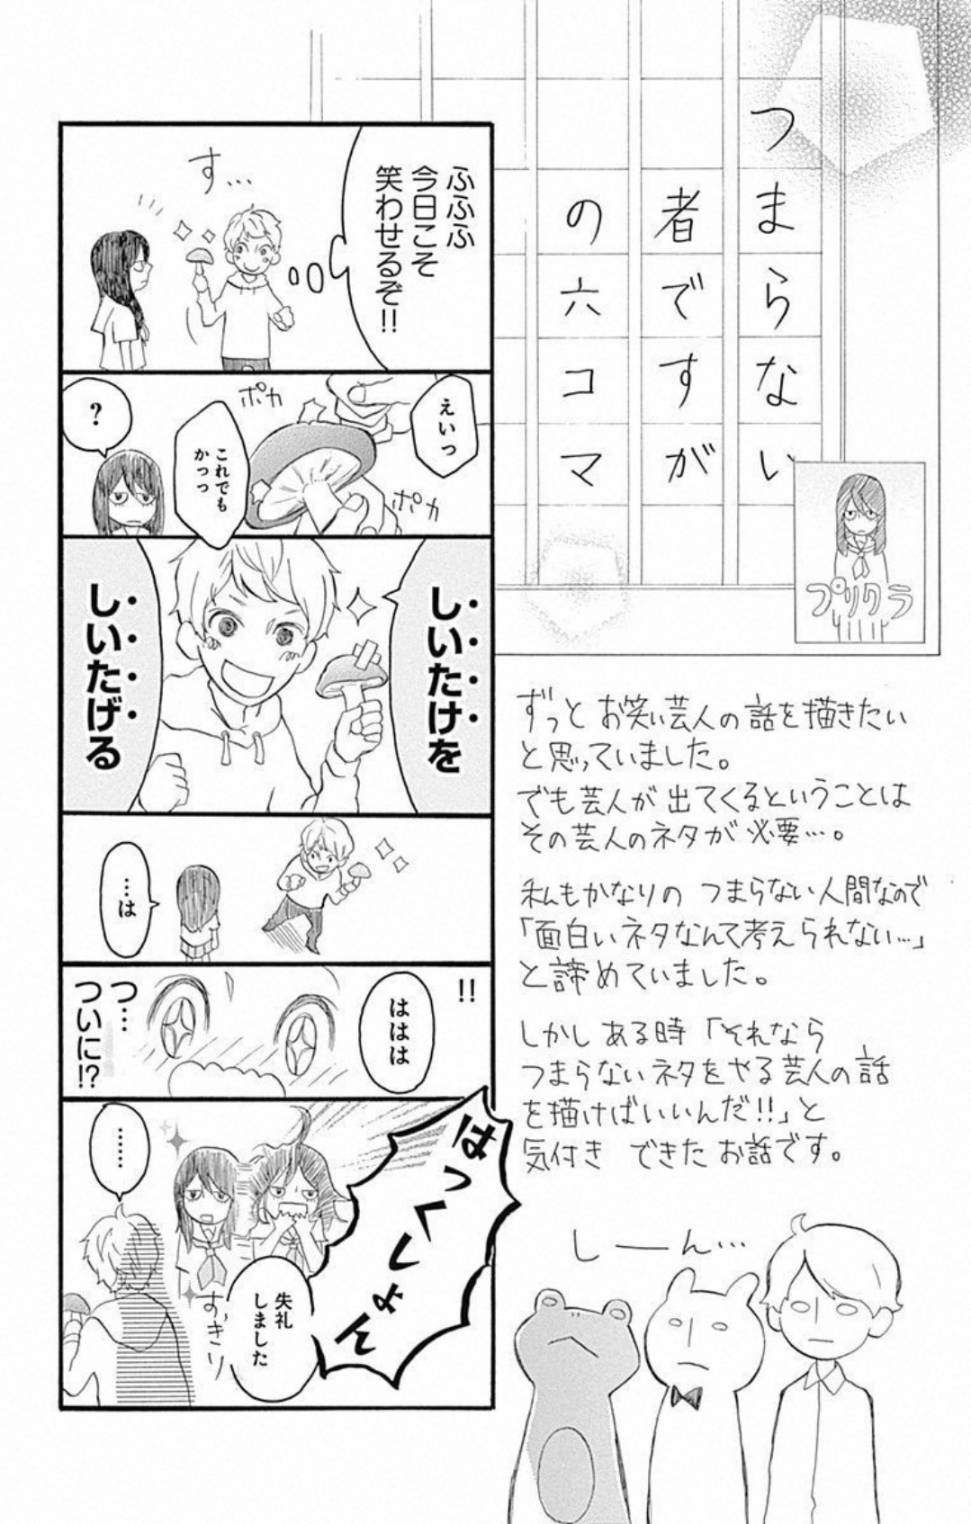 つまらない
者ですが
の六コマ
プリクラ
ふふふ
今日こそ
笑わせるぞ!!
す…
えいっ
ポカ
ポカ
これでも
かっっ
?
しいたけを
しいたげる
…は
ははは
!!
つ…
ついに!?
はっくしょん
失礼
しました
すっきり
……
ずっとお笑い芸人の話を描きたい
と思っていました。
でも芸人が出てくるということは
その芸人のネタが必要…。
私もかなりのつまらない人間なので
「面白いネタなんて考えられない…」
と諦めていました。
しかしある時「それなら
つまらないネタをやる芸人の話
を描けばいいんだ!!」と
気付きできたお話です。
しーん…